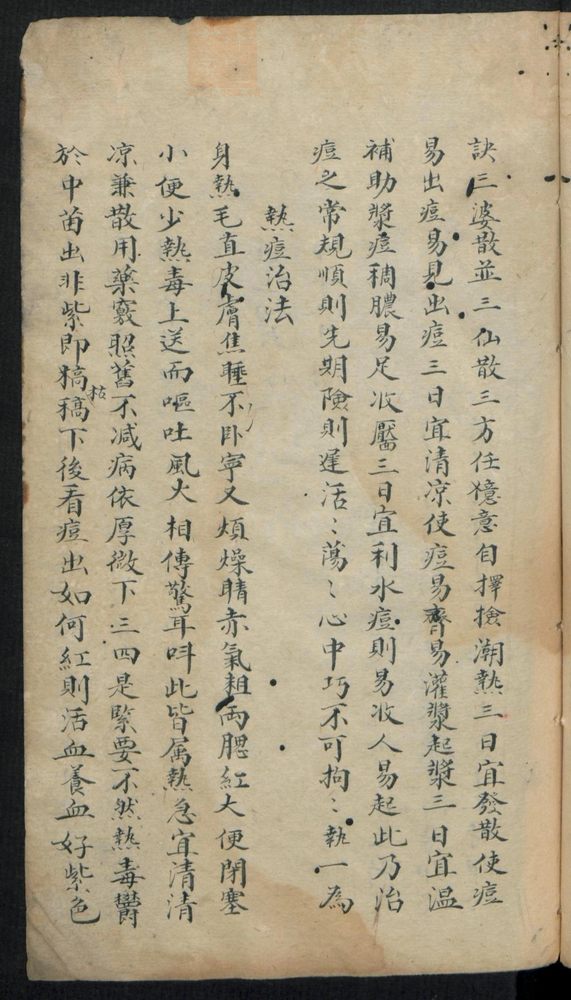 訣三婆散並三仙散三方任憶意自擇撿潮熱三日宜發散使痘
易出痘易見出痘三日宜清凉使痘易齊易灌漿起漿三日宜温
補助漿痘稠膿易足收靨三日宜利水痘則易收人易起此乃治
痘之常規順則先期險則遲活〻蕩〻心中巧不可拘〻執一為
熱痘治法
身熱毛直皮膚焦睡不卧寧又煩燥睛赤氣粗両腮紅大便閉塞
小便少熱毒上送而嘔吐風火相傳驚耳呌此皆属熱急宜清清
凉兼散用藥竅照舊不减病依厚微下三四是緊要不然熱毒欝
於中苗出非紫即犒稿枯下後看痘出如何紅則活血養血好紫色